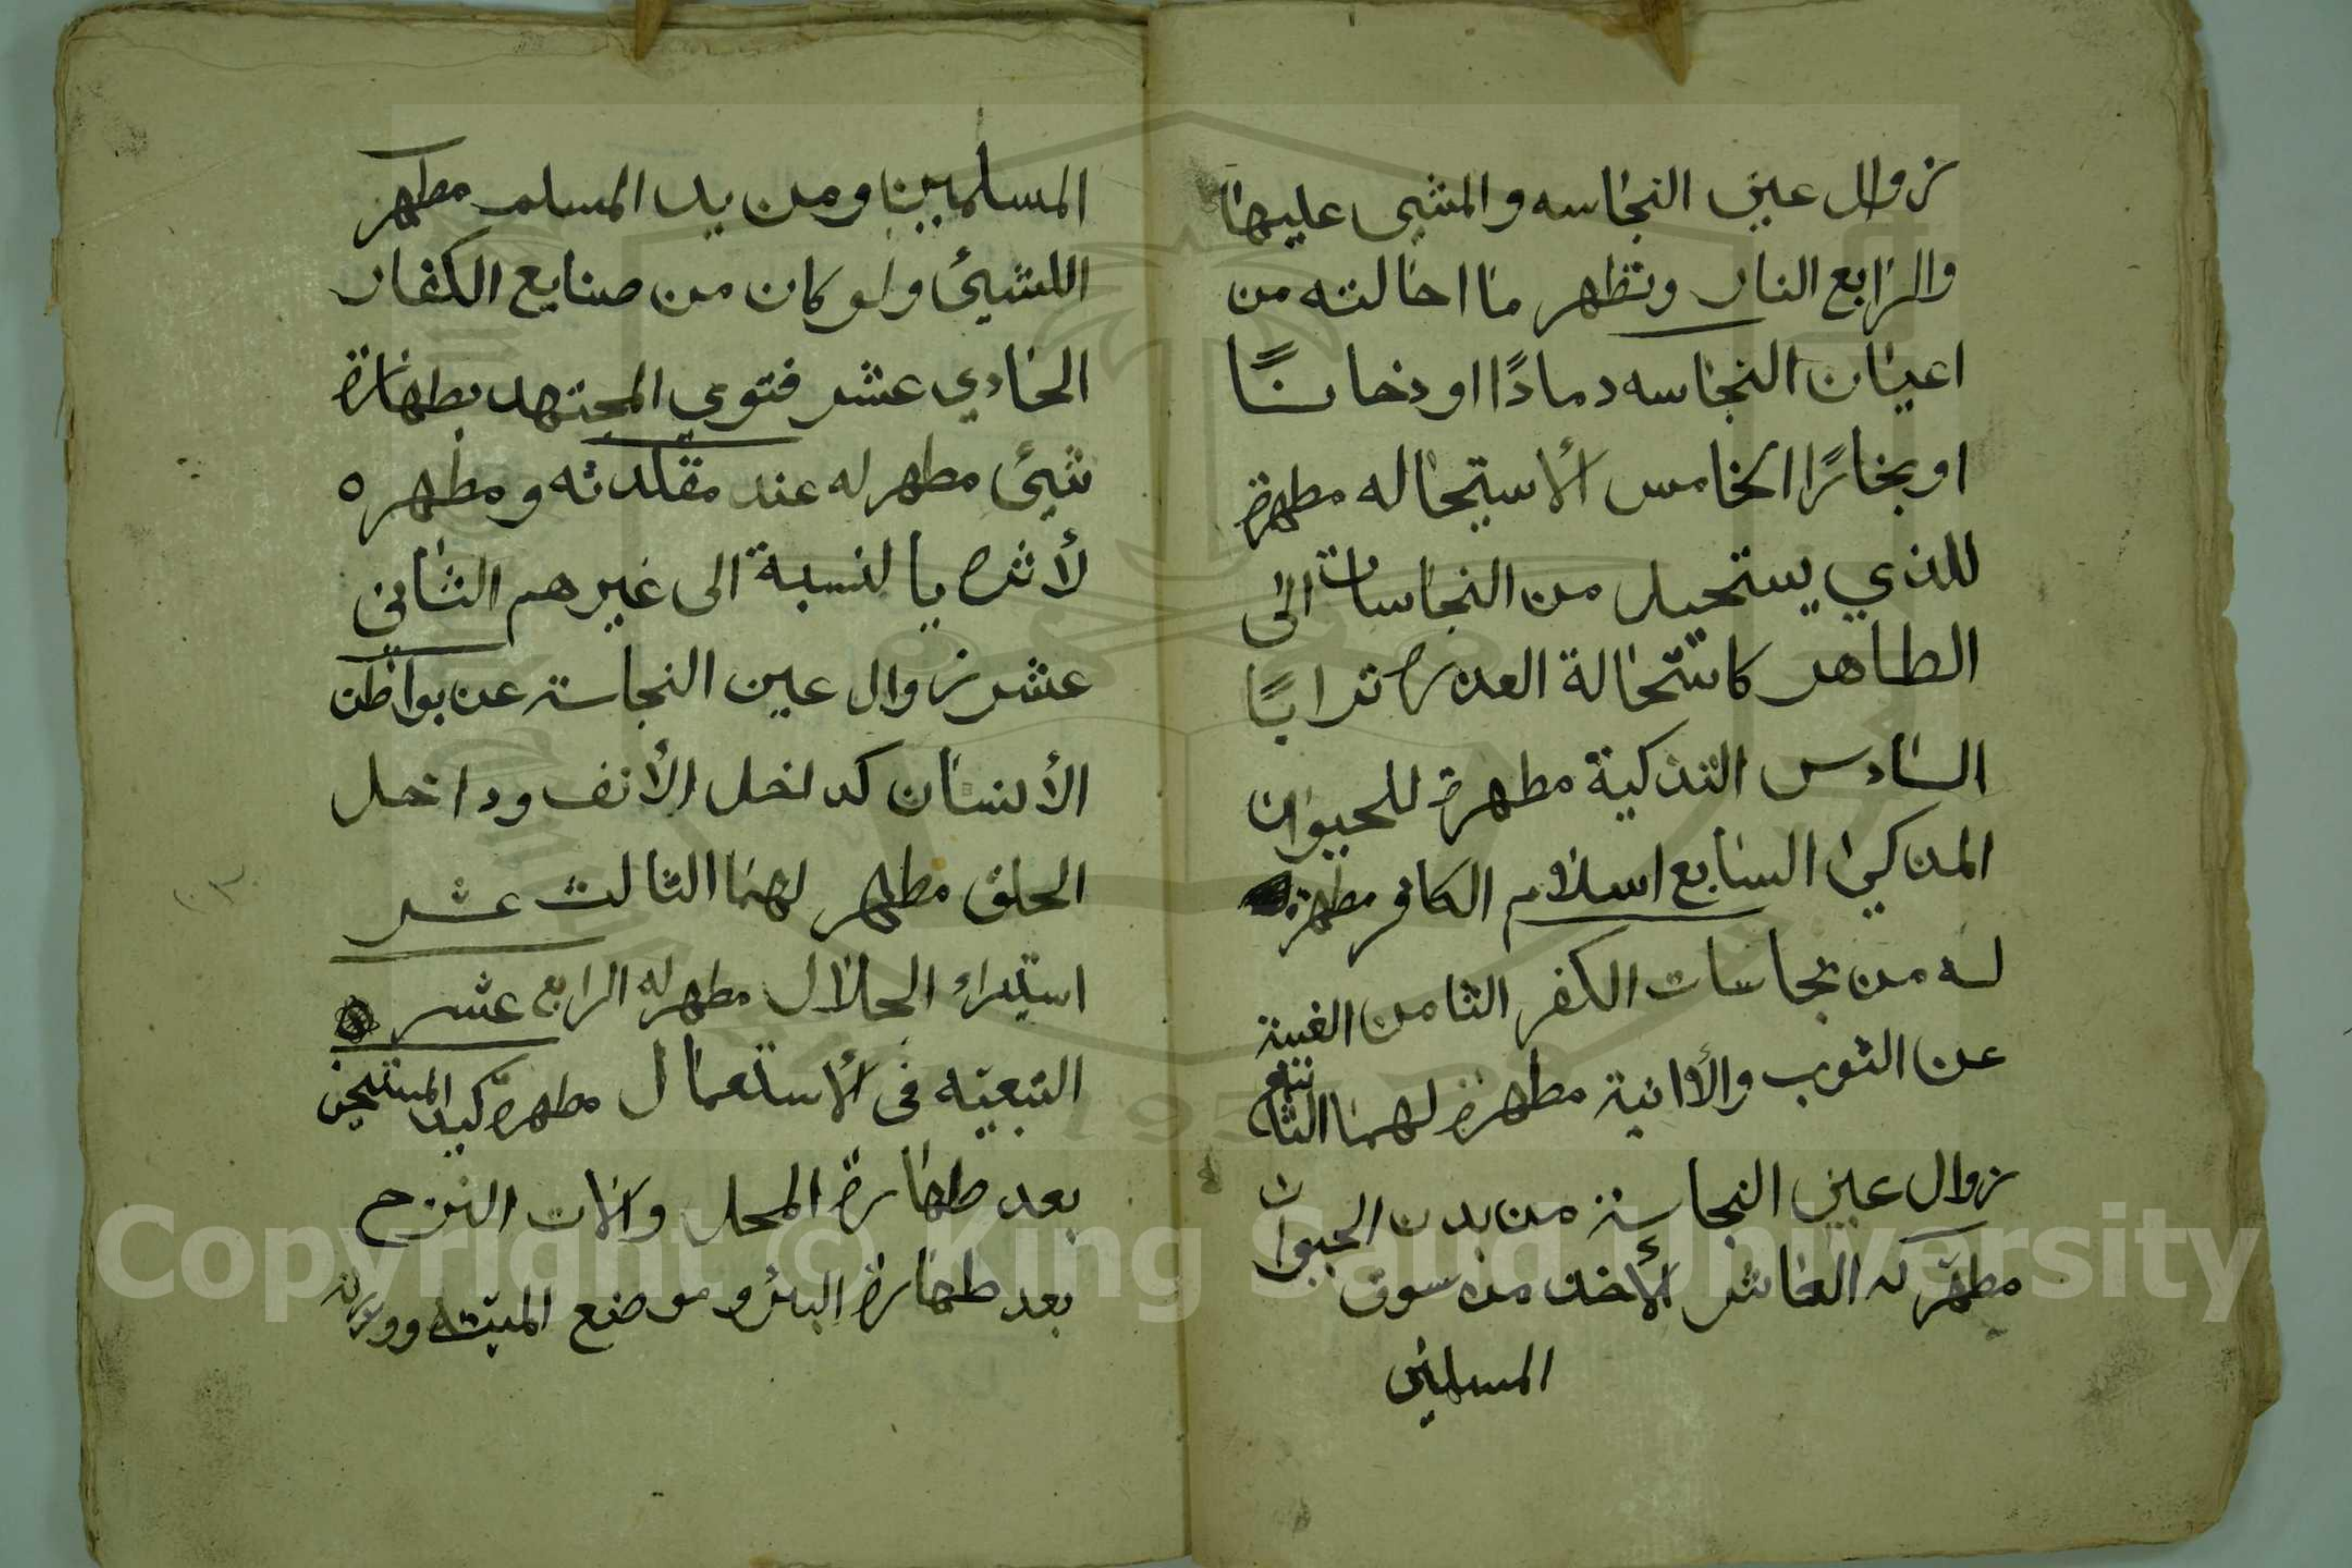 زوال عين النجاسه والمشي عليها
والرابع النار وتطهر ما احالته من
اعيان النجاسه دمادًا او دخانًا
او بخارًا الخامس الأستحاله مطهرة
للذي يستحيل من النجاسات الى
الطاهر كاستحالة العذرة ترابًا
السادس التذكية مطهرة للحيوان
المذكى السابع اسلام الكافر مطهر
له من نجاسات الكفر الثامن الغيبة
عن الثوب والأانية مطهرة لهما التاسع
زوال عين النجاسة من بدن الحيوان
مطهر له العاشر الأخذ من سوق
المسلمين
المسلمين ومن يد المسلم مطهر
اللشيئ ولو كان من صنايع الكفار
الحادي عشر فتوي المجتهد بطهارة
شيئ مطهر له عند مقلدته ومطهره
لأثره بالنسبة الى غيرهم الثاني
عشر زوال عين النجاسة عن بواطن
الأنسان كداخل الأنف وداخل
الحلق مطهر لهما الثالث عشر
استبراء الحلال مطهر له الرابع عشر
التبعيه في الأستعمال مطهرة كيد المستنجي
بعد طهارة المحل وآلات النزح
بعد طهارة البئر وموضع الميته
Copyright © King Saud University